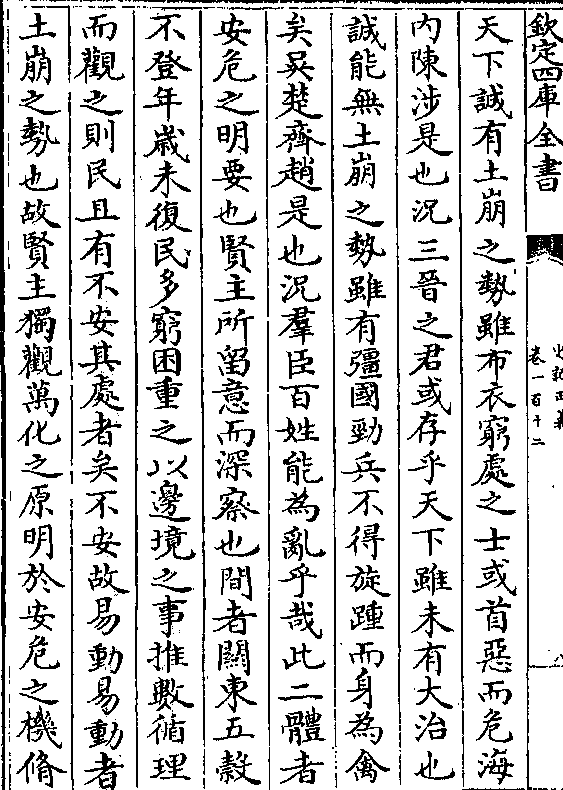 欽定四庫全書
史記正義
卷一百十二
八
天下誠有土崩之勢雖布衣窮處之士或首惡而危海
内陳涉是也況三晉之君或存乎天下雖未有大治也
誠能無土崩之勢雖有彊國勁兵不得旋踵而身為禽
矣吴楚齊趙是也況羣臣百姓能為亂乎哉此二體者
安危之明要也賢主所留意而深察也間者關東五穀
不登年嵗未復民多窮困重之以邊境之事推數循理
而觀之則民且有不安其處者矣不安故易動易動者
土崩之勢也故賢主獨觀萬化之原明於安危之機脩